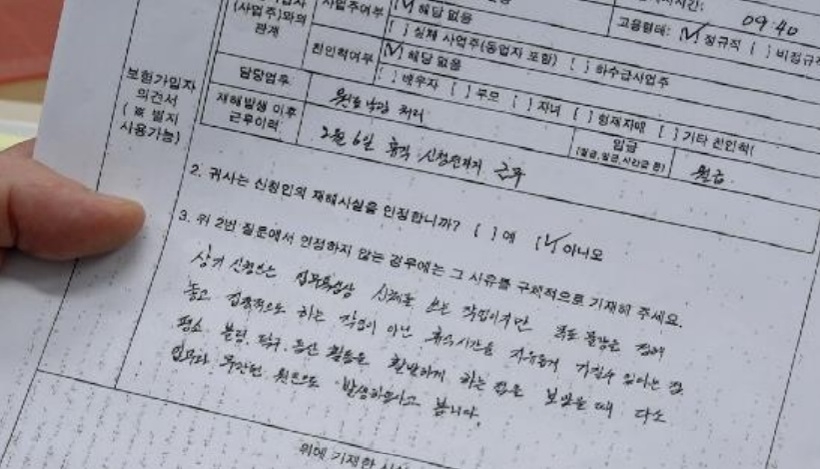 (사업주)와의
관계
사업주여부
[√] 해당 없음
09:40
고용형태: [√] 정규직 [ ] 비정규직
[ ] 실제 사업주(동업자 포함) [ ] 하수급사업주
친인척여부
[√] 해당 없음
[ ] 배우자 [ ] 부모 [ ] 자녀 [ ] 형제자매 [ ] 기타 친인척(
보험가입자
의견서
(※ 별지
사용가능)
담당업무
처리
재해발생 이후
근무이력
2월 6일 휴직 신청전까지 근무
임금
(일급, 월급, 시간급 등)
월급
2. 귀사는 신청인의 재해사실을 인정합니까? [ ] 예 [√] 아니오
3. 위 2번 질문에서 인정하지 않는 경우에는 그 사유를 구체적으로 기재해 주세요.
상기 신청인은 업무특성상 신체를 쓰는 작업이지만 물량을 정해
놓고 집중적으로 하는 작업이 아닌 휴식시간을 자유롭게 가질수 있다는 점
평소 볼링, 탁구, 등산 활동을 활발하게 하는 점을 보았을 때 다소
업무와 무관한 원인으로 발생하였다고 봅니다.
위에 기재한